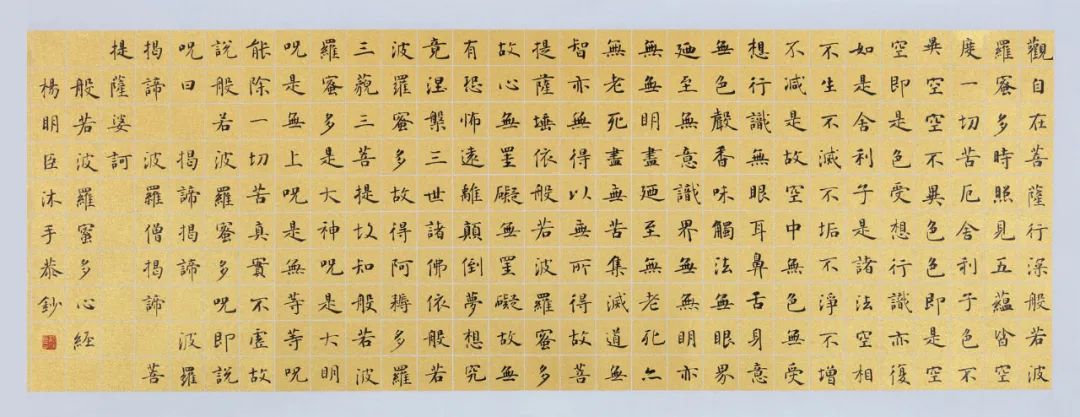 觀自在菩薩行深般若波
羅蜜多時照見五蘊皆空
度一切苦厄舍利子色不
異空空不異色色即是空
空即是色受想行識亦復
如是舍利子是諸法空相
不生不滅不垢不淨不增
不減是故空中無色無受
想行識無眼耳鼻舌身意
無色聲香味觸法無眼界
廼至無意識界無無明亦
無無明盡廼至無老死亦
無老死盡無苦集滅道無
智亦無得以無所得故菩
提薩埵依般若波羅蜜多
故心無罣礙無罣礙故無
有恐怖遠離顛倒夢想究
竟涅槃三世諸佛依般若
波羅蜜多故得阿耨多羅
三藐三菩提故知般若波
羅蜜多是大神呪是大明
呪是無上呪是無等等呪
能除一切苦真實不虛故
說般若波羅蜜多呪即說
呪曰 揭諦揭諦 波羅
揭諦 波羅僧揭諦 菩
提薩婆訶
般若波羅蜜多心経
楊明臣沐手恭鈔